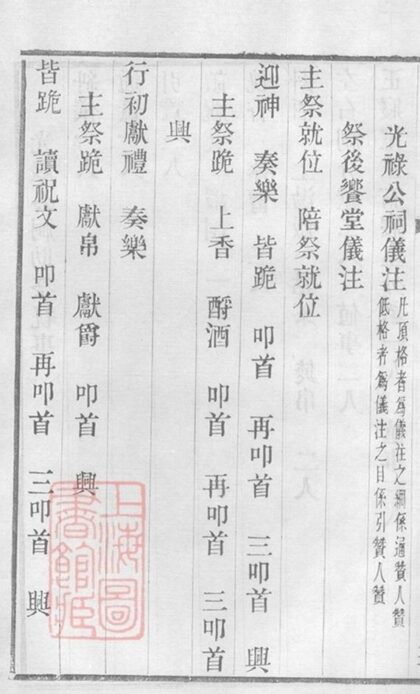 光祿公祠儀注 凡頂格者爲儀注之綱係通贊人贊
低格者爲儀注之目係引贊人贊
祭後饗堂儀注
主祭就位 陪祭就位
迎神 奏樂 皆跪 叩首 再叩首 三叩首 興
主祭跪 上香 酹酒 叩首 再叩首 三叩首
興
行初獻禮 奏樂
主祭跪 獻帛 獻爵 叩首 興
皆跪 讀祝文 叩首 再叩首 三叩首 興
上海圖書館藏